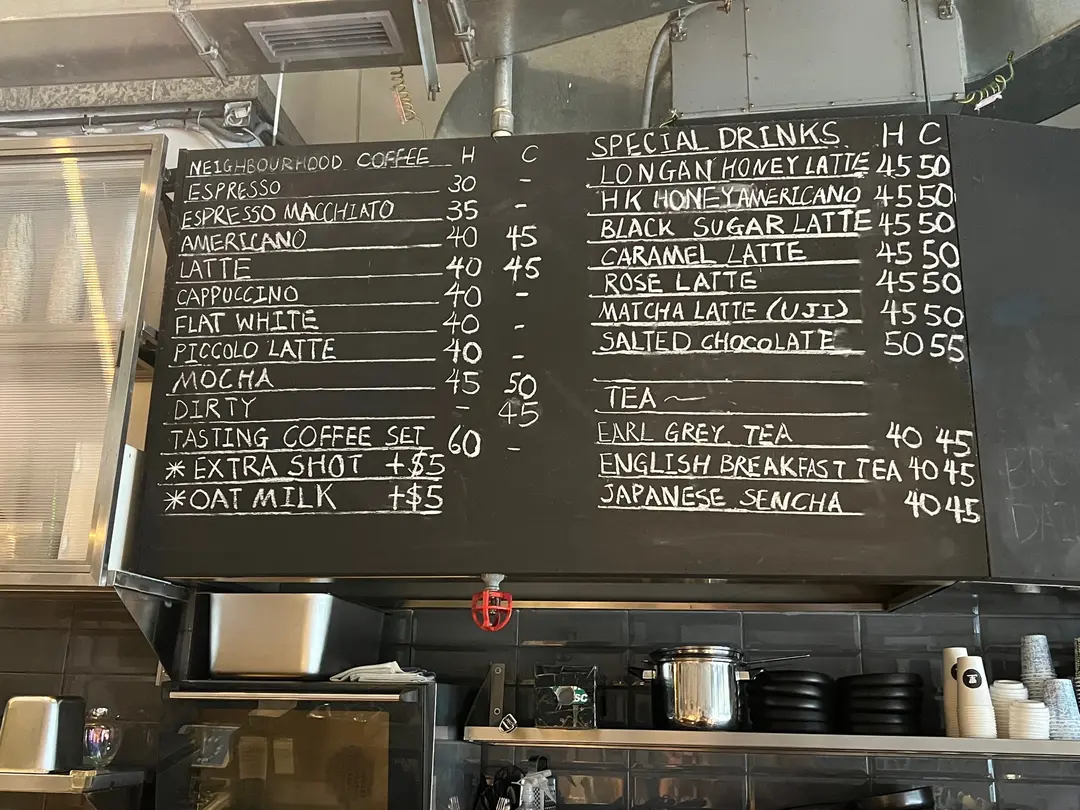 NEIGHBOURHOOD COFFEE H C
ESPRESSO 30 -
ESPRESSO MACCHIATO 35 -
AMERICANO 40 45
LATTE 40 45
CAPPUCCINO 40 -
FLAT WHITE 40 -
PICCOLO LATTE 40 -
MOCHA 45 50
DIRTY - 45
TASTING COFFEE SET 60 -
* EXTRA SHOT +$5
* OAT MILK +$5
SPECIAL DRINKS H C
LONGAN HONEY LATTE 45 50
HK HONEY AMERICANO 45 50
BLACK SUGAR LATTE 45 50
CARAMEL LATTE 45 50
ROSE LATTE 45 50
MATCHA LATTE (UJI) 45 50
SALTED CHOCOLATE 50 55
TEA ~
EARL GREY TEA 40 45
ENGLISH BREAKFAST TEA 40 45
JAPANESE SENCHA 40 45